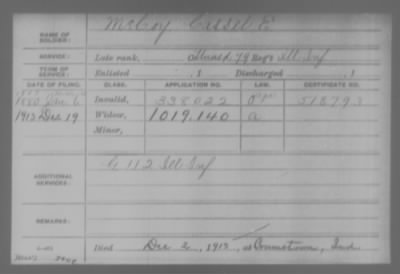 NAME OF SOLDIER: McCoy
SERVICE: Late rank, 79 Reg't Ill Inf
TERM OF SERVICE: Enlisted , 1 Discharged , 1
DATE OF FILING. CLASS. APPLICATION NO. LAW. CERTIFICATE NO.
1880 Jan 6 Invalid, 338022
1913 Dec 19 Widow, 1019.140 a
Minor,
ADDITIONAL SERVICES: G 112 Ill Inf
REMARKS:
Died Dec 2, 1913, at Ind